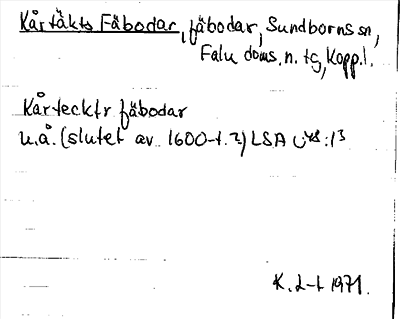 Kårtäkts Fäbodar, fäbodar, Sundborns sn,
Falu doms. n. tg, Kopp. l.
Kårtecktr fäbodar
u.å. (slutet av 1600-t.?) LSA U48:13
K. L-t 1971.